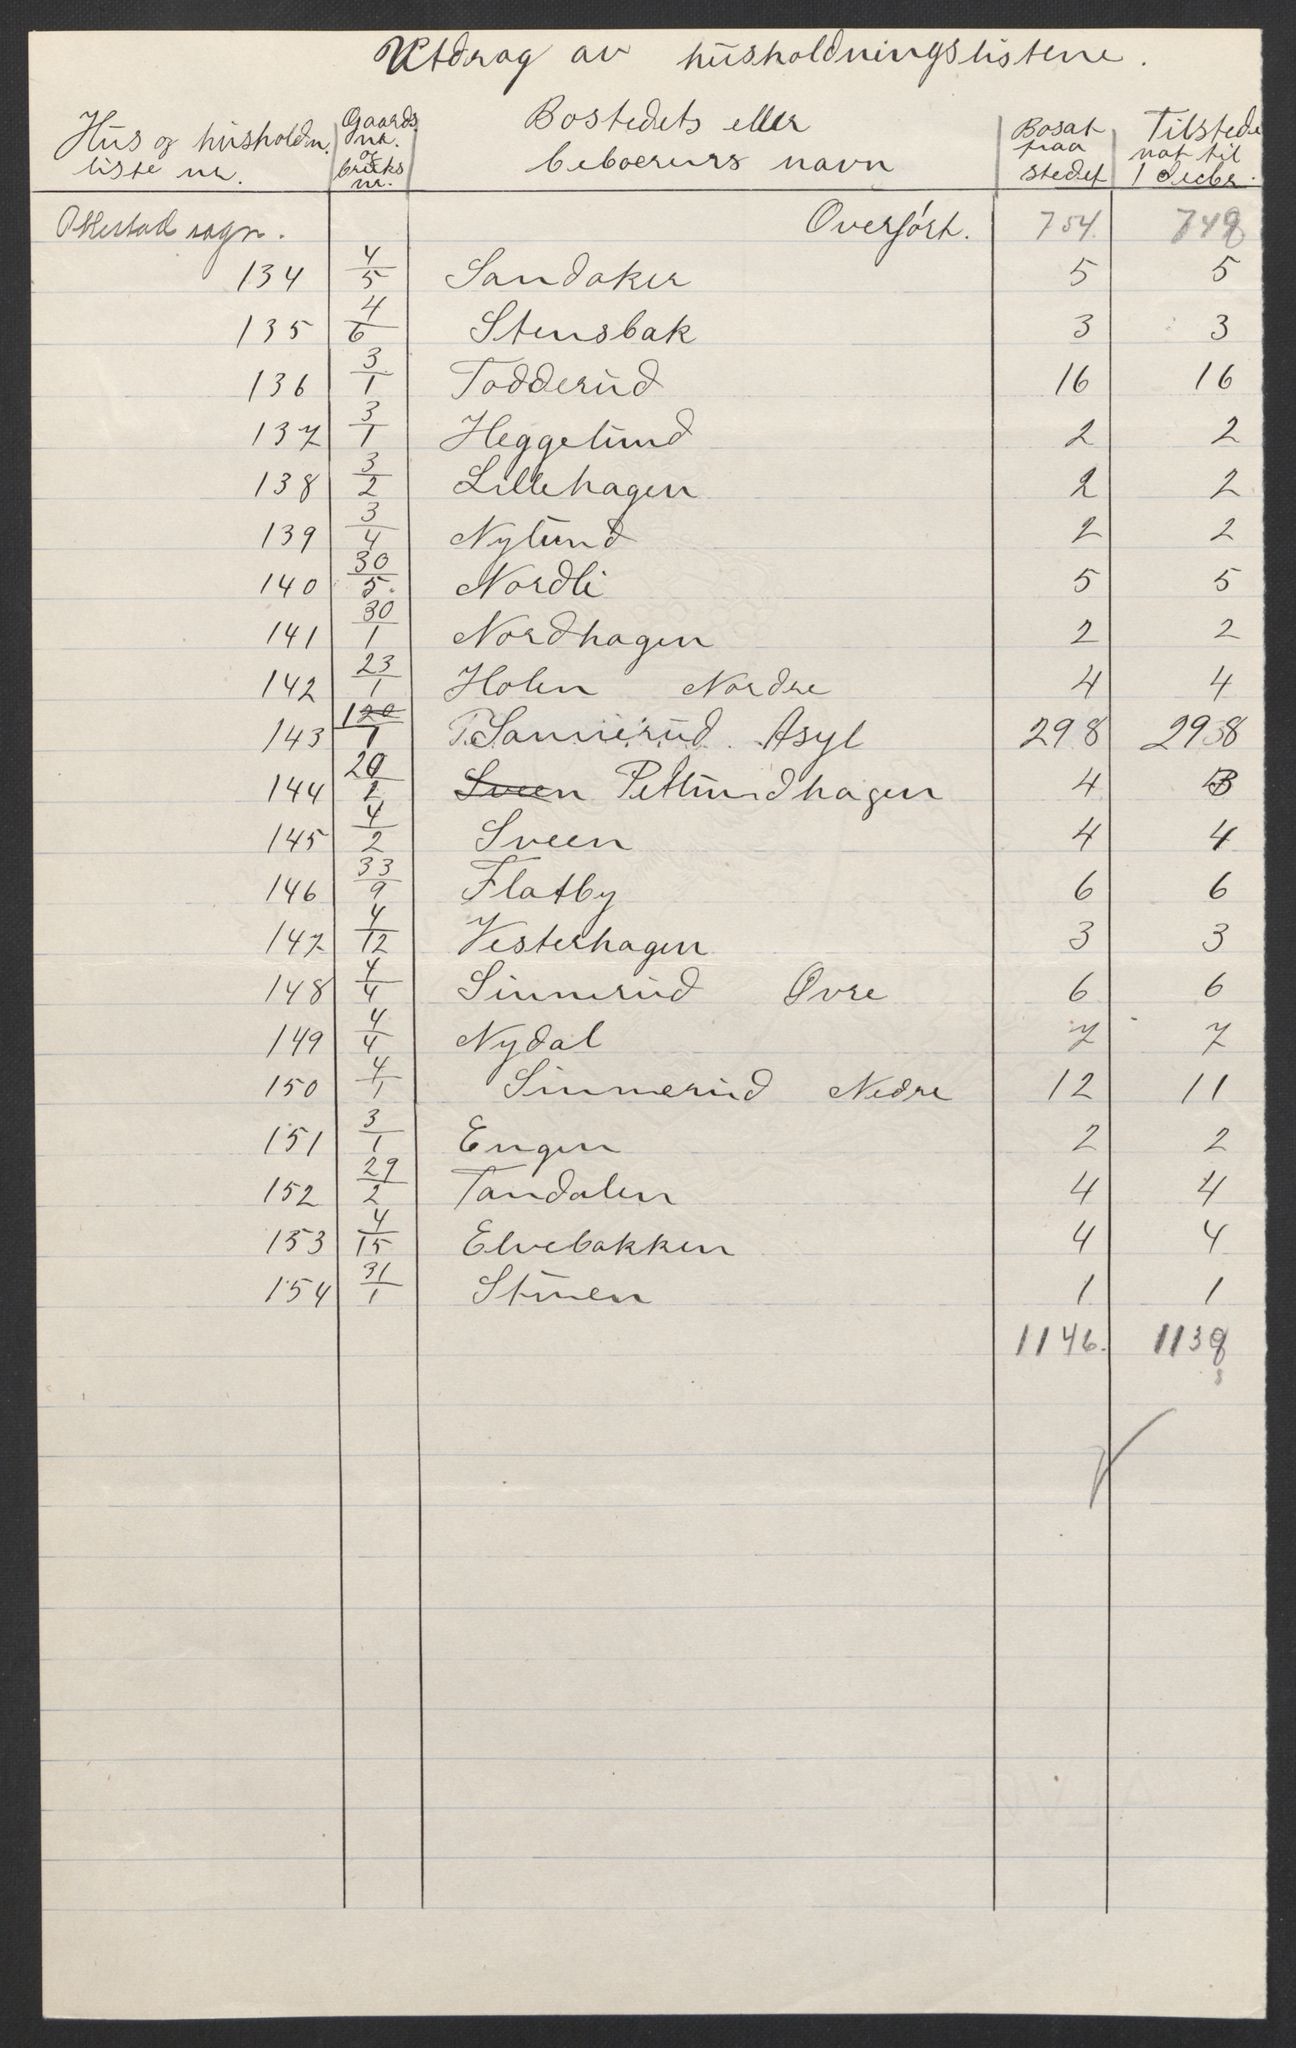 Utdrag av husholdningslistene.
Hus og husholdn. liste nr. | Gaards nr. og bruks nr. | Bostedets eller beboerens navn | Bosat paa stedet | Tilstede nat til 1 decbr.
Ottestad sogn. Overført. 754. 749
134 4/5 Sandaker 5 5
135 4/6 Stensbak 3 3
136 3/1 Todderud 16 16
137 3/1 Heggelund 2 2
138 3/2 Lillehagen 2 2
139 3/4 Nylund 2 2
140 30/5. Nordli 5 5
141 30/1 Nordhagen 2 2
142 23/1 Holen Nordre 4 4
143 1/1 Sannerud Asyl 298 298
144 20/2 Sveen Petlundhagen 4 3
145 4/2 Sveen 4 4
146 33/9 Flatby 6 6
147 4/12 Vesterhagen 3 3
148 4/4 Sinnerud Øvre 6 6
149 4/4 Nydal 7 7
150 4/1 Sinnerud Nedre 12 11
151 3/1 Engen 2 2
152 29/2 Tandalen 4 4
153 4/15 Elvebakken 4 4
154 31/1 Stuen 1 1
1146. 1139